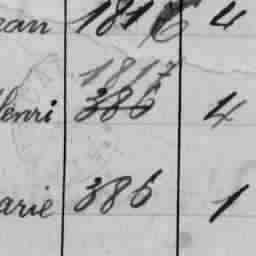 ean 1816 4
1817
Henri 386 4
arie 386 1